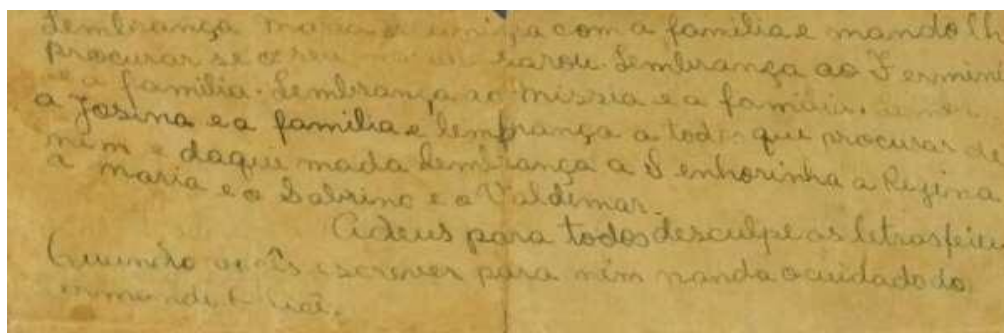 Lembrança maria e com a familia e mando lh
procurar se o seu sarou. Lembrança ao Fermini
e a familia. Lembrança ao missia e a familia.
a Josina e a familia e lembrança a todos que procurar de
mim e daqui mada Lembrança a Senhorinha a Regina
a maria e o Sabrino e o Valdimar.
Adeus para todos desculpe as letras feia
Quando vocês escrever para mim manda o cuidado do